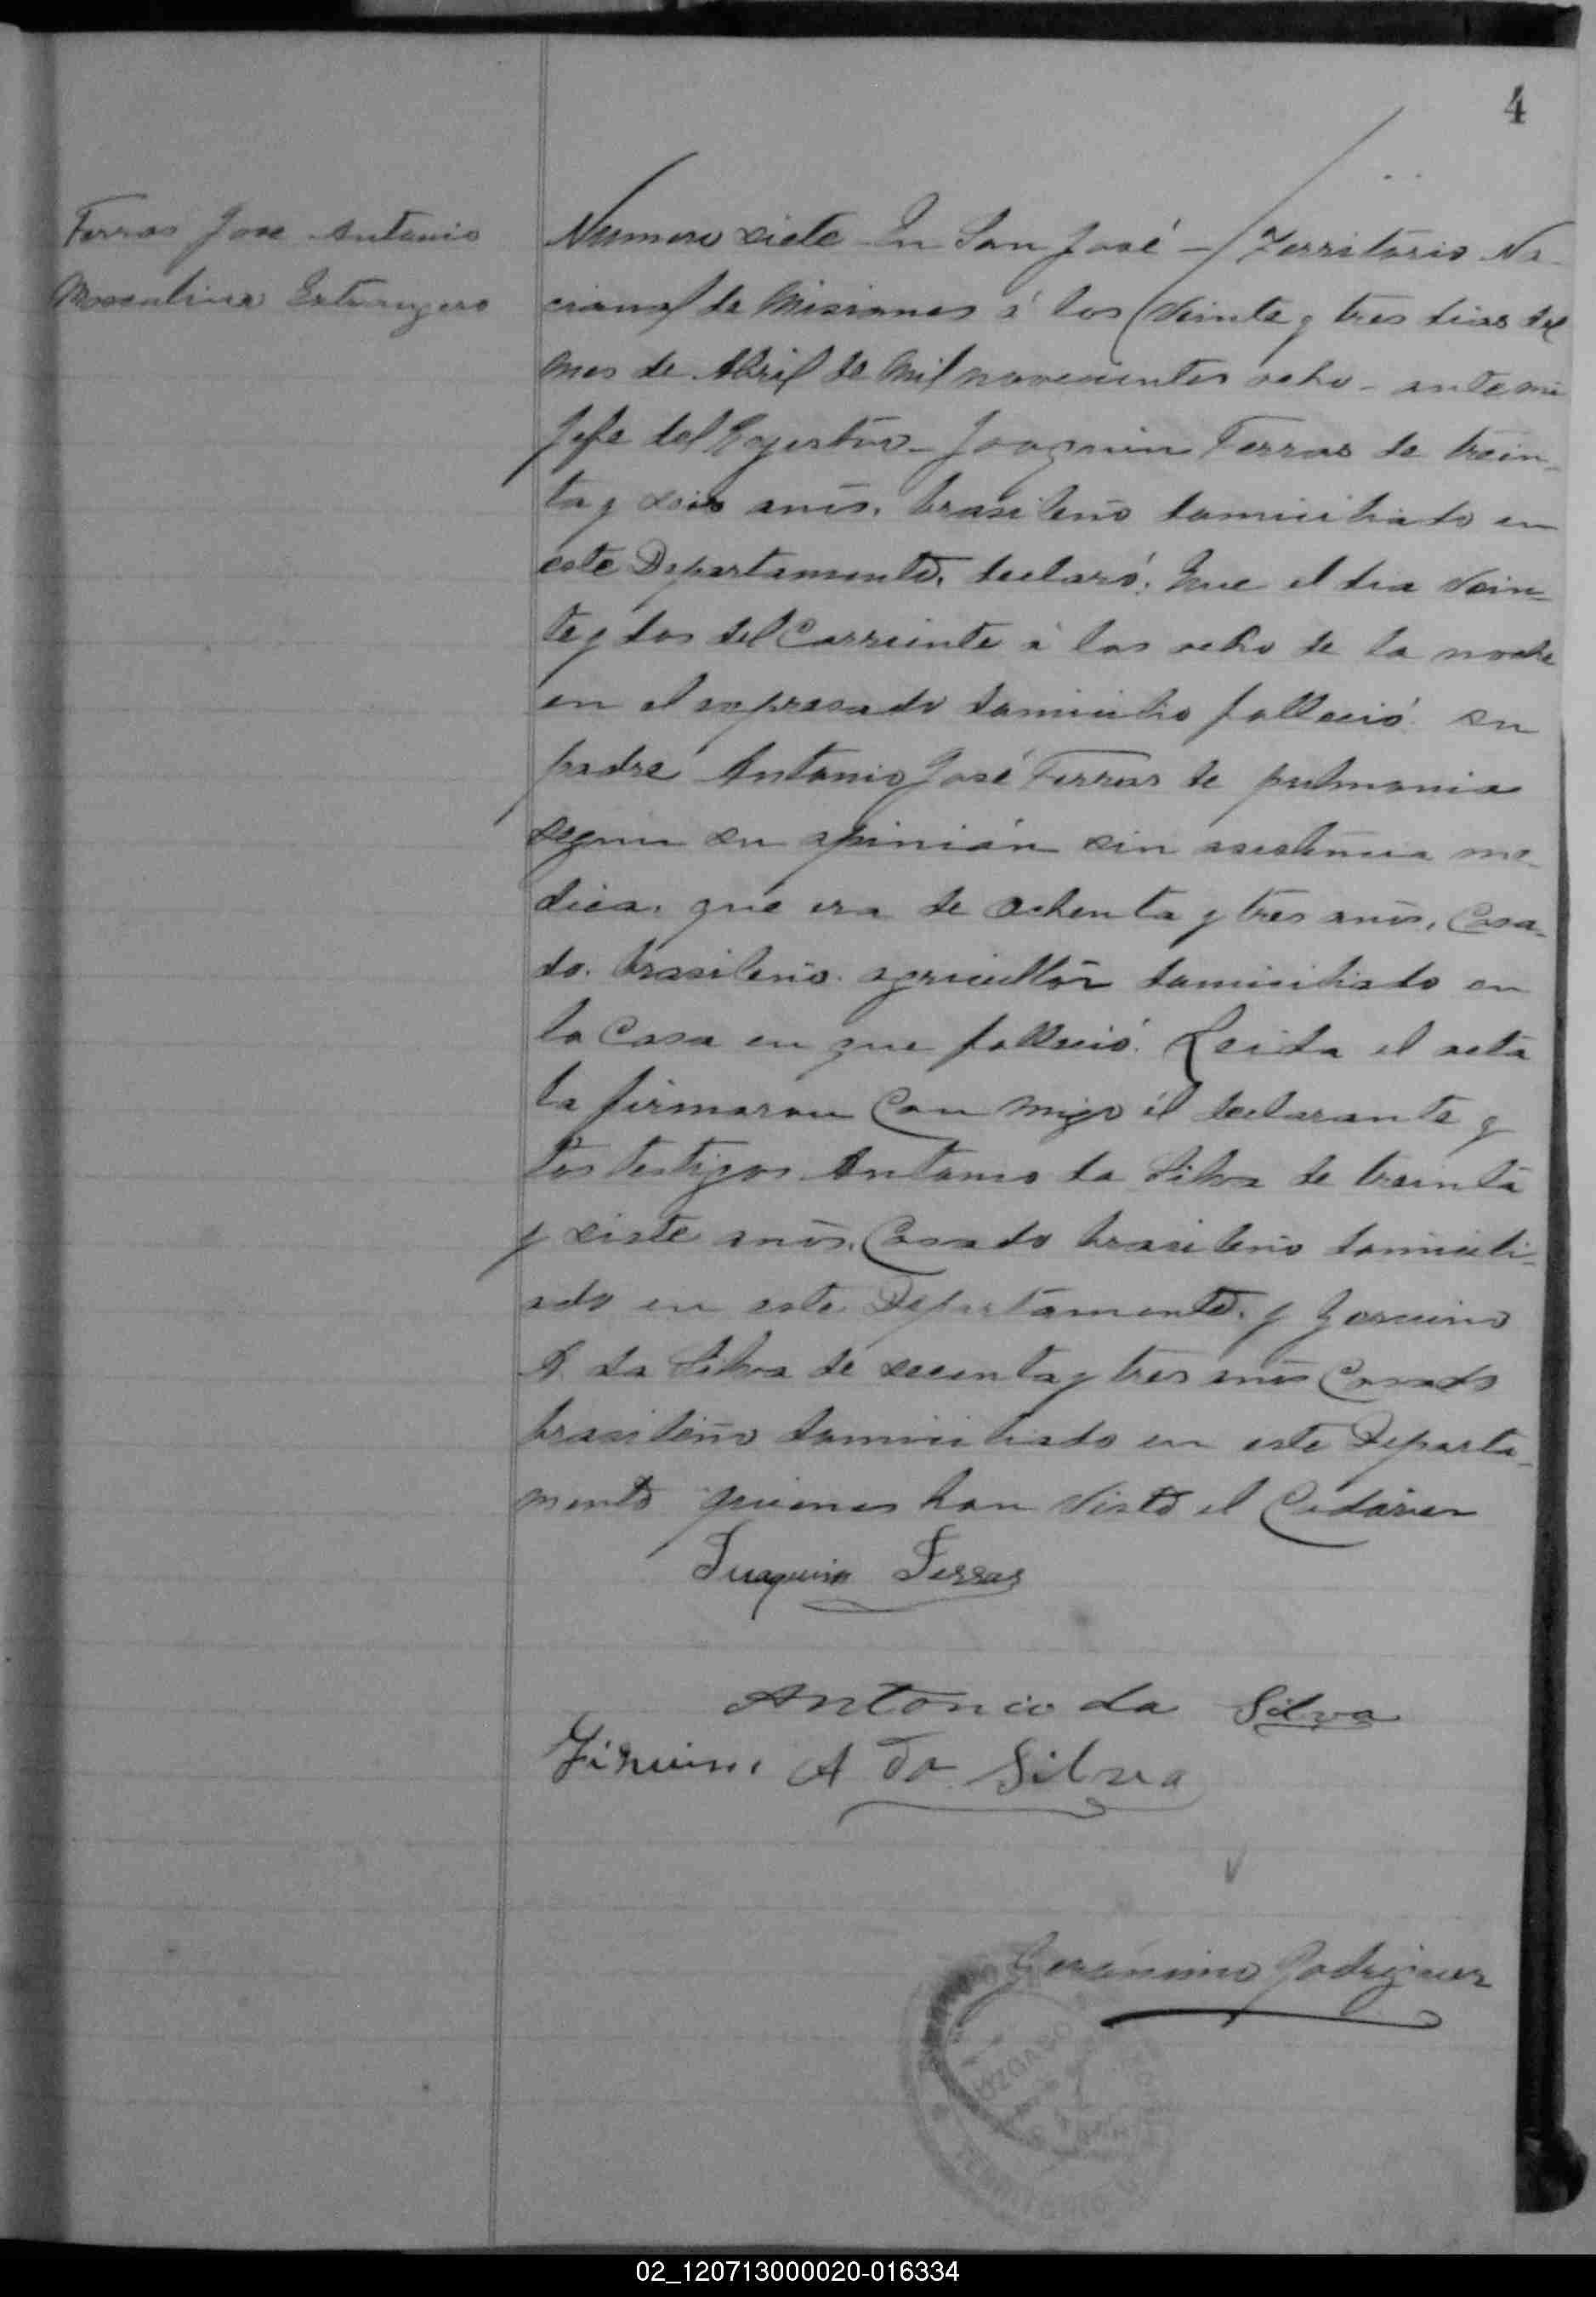 4
Ferras Jose Antonio
Masculino Extrangero
Numero siete En San José – Territorio Na-
cional de Misiones á los veinte y tres dias del
mes de Abril de mil novecientos ocho – ante mi
Jefe del Registro – Joaquin Ferras de trein-
ta y seis anós, brasileño domiciliado en
este Departamento, declaró: Que el dia vein-
te y dos del Corriente á las ocho de la noche
en el expresado domicilio falleció su
padre Antonio José Ferras de pulmonia
segun su opinión sin asistencia me-
dica, que era de ochenta y tres anós, Casa-
do, brasileño agricultor domiciliado en
la Casa en que falleció. Leida el acta
la firmaron Con migo él declarante y
los testigos Antonio da Silva de treinta
y siete anós, Casado brasileño domicili-
ado en este Departamento, y
A. da Silva de secenta y tres anós Casado
brasileño domiciliado en este Departa-
mento quienes han visto el Cadáver
Juaquin Ferras
Antonio da Silva
A da Silva
Gerónimo Rodriguez
JUZGADO
TERRITORIO
02_120713000020-016334